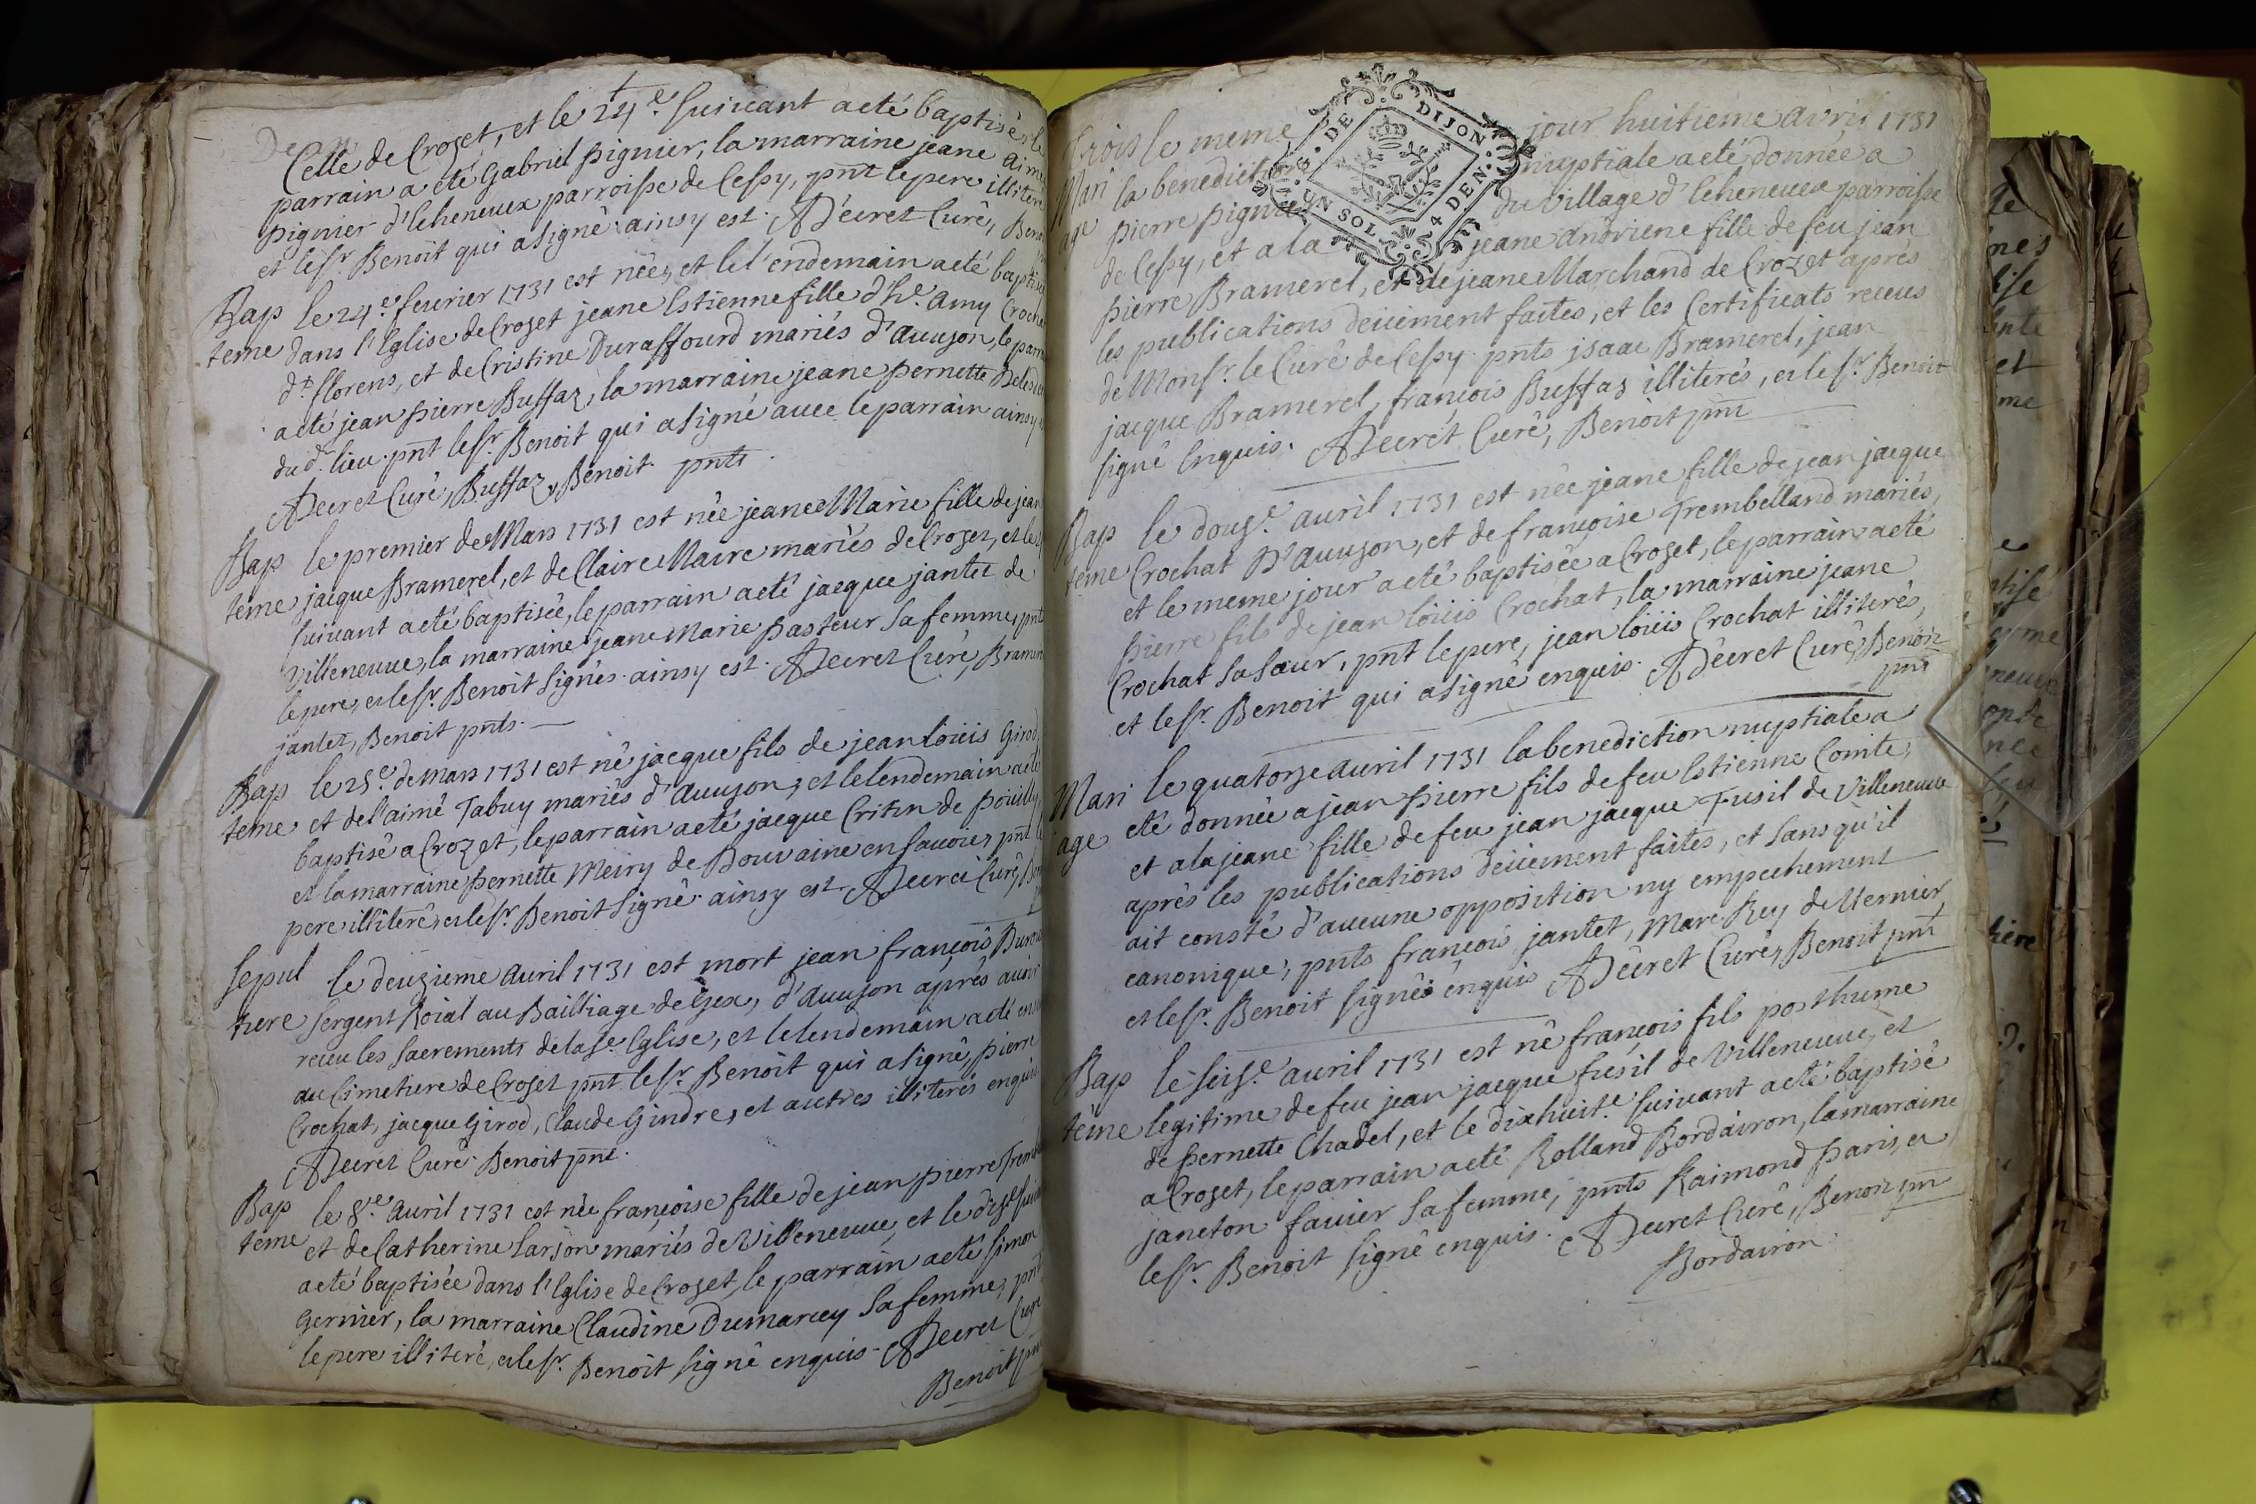 Celle de Crozet, et le 24e. suivant a eté baptisée, le
parrain a eté Gabriel pignier, la marraine jeane Aimé
pignier d'lcheneuex parroisse de Cessy, pnt le pere illiteré
et le Sr. Benoit qui a signé ainsy est. ADecret Curé, Beno
Bap le 24.e fevrier 1731 est née, et le l'endemain a eté baptisée
teme dans l'Eglise de Crozet jeane Estienne fille d'he. Amy Crochat
dt. florens, et de Cristine Duraffourd mariés d'Avuzon, le parrain
a eté jean pierre Buffaz, la marraine jeane pernette
du d. lieu. pnt le Sr. Benoit qui a signé avec le parrain ainsy
ADecret Curé, Buffaz, Benoit. pnts.
Bap le premier de Mars 1731 est née jeane Marie fille de jean
teme jacque Bramerel, et de Claire Maire mariés de Crozet, et le
suivant a eté baptisée, le parrain a eté jacque jantet de
Villeneuve, la marraine jeane Marie pasteur sa femme, pnts
le pere, et le Sr. Benoit signés. ainsy est. ADecret Curé, Bramerel
jantet, Benoit pnts.
Bap le 25.e de Mars 1731 est né jacque fils de jean loüis Girod,
teme et de l'aimé Tabuy mariés d'Avuzon, et le lendemain a eté
baptisé a Crozet, le parrain a eté jacque Critin de poüilly,
et la marraine pernette Meiry de Douvaine en Savoie, pnt le
pere illiteré, et le Sr. Benoit signé. ainsy est. ADecret Curé, Ben
Sepul le deuzieme Avril 1731 est mort jean françois
ture sergent Roial au Bailliage de Gex, d'Avuzon aprés avoir
receu les sacrements de la Ste. Eglise, et le lendemain a eté
au Cimetiere de Crozet pnt le Sr. Benoit qui a signé, pierre
Crochat, jacque Girod, Claude Gindre, et autres illiterés enquis
ADecret Curé. Benoit pnt.
Bap le 8.e Avril 1731 est née françoise fille de jean pierre
teme et de Catherine larjon mariés de Villeneuve, et le dize. suivant
a eté baptisée dans l'Eglise de Crozet, le parrain a eté simon
Gernier, la marraine Claudine Dumarcey sa femme, pnt
le pere illiteré, et le Sr. Benoit signé enquis. ADecret Curé
Benoit pnt
GE. DE DIJON. UN SOL. 4 DEN.
Trois le meme jour huitieme Avril 1731
Mari la benediction nuptiale a eté donnée a
age pierre pignier du village d'lcheneuex parroisse
de Cessy, et a la jeane Andriene fille de feu jean
pierre Bramerel, et de jeane Marchand de Crozet aprés
les publications deüement faites, et les Certificats receus
de Monsr. le Curé de Cessy. pnts jsaac Bramerel, jean
jacque Bramerel, françois Buffaz illiterés, et le Sr. Benoit
signé enquis. ADecret Curé, Benoit pnt
Bap le douze. avril 1731 est née jeane fille de jean jacque
teme Crochat D'Avuzon, et de françoise Trembelland mariés,
et le meme jour a eté baptisée a Crozet, le parrain a eté
pierre fils de jean loüis Crochat, la marraine jeane
Crochat sa sœur, pnt le pere, jean loüis Crochat illiterés,
et le Sr. Benoit qui a signé enquis. ADecret Curé, Benoit
pnt
Mari le quatorze Avril 1731 la benediction nuptiale a
age eté donnée a jean pierre fils de feu Estienne Comte,
et a la jeane fille de feu jean jacque Fusil de Villeneuve
aprés les publications deüement faites, et sans qu'il
ait consté d'aucune opposition ny empechement
canonique, pnts françois jantet, Marc Rey de Vernier
et le Sr. Benoit signés enquis ADecret Curé, Benoit pnt
Bap le seize. avril 1731 est né françois fils posthume
teme legitime de feu jean jacque fusil de Villeneuve, et
de pernette Chadel, et le dixhuite. suivant a eté baptisé
a Crozet, le parrain a eté Rolland Bordairon, la marraine
janeton favier sa femme, pnts Raimond paris, et
le Sr. Benoit signé enquis. ADecret Curé, Benoit pnt
Bordairon.